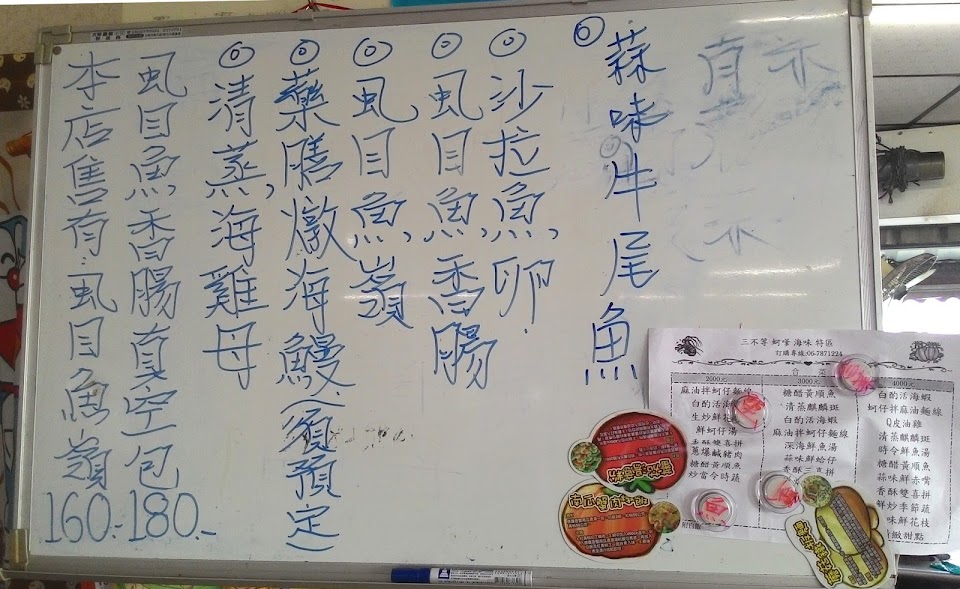 ◎蒜味牛尾魚
◎沙拉魚卵
◎虱目魚香腸
◎虱目魚嶺
◎藥膳燉海鰻(須預定)
◎清蒸海雞母
虱目魚香腸真空包180.-
本店售有:虱目魚嶺160.-
三不等 蚵嗲 海味 特區
訂購專線:06-7871224
合菜
2000元
麻油拌蚵仔麵線
白酌活海蝦
生炒鮮花
鮮蚵仔湯
香酥雙喜拼
蔥爆鹹豬肉
糖醋黃順魚
炒當令時蔬
附白飯
3000元
糖醋黃順魚
清蒸麒麟斑
白酌活海蝦
麻油拌蚵仔麵線
深海鮮魚湯
蒜味鮮蛤仔
香酥三喜拼
4000元
白酌活海蝦
蚵仔拌麻油麵線
Q皮油雞
清蒸麒麟斑
時令鮮魚湯
糖醋黃順魚
蒜味鮮赤嘴
香酥雙喜拼
鮮炒季節蔬
味鮮花枝
緻甜點
南瓜蟹肉